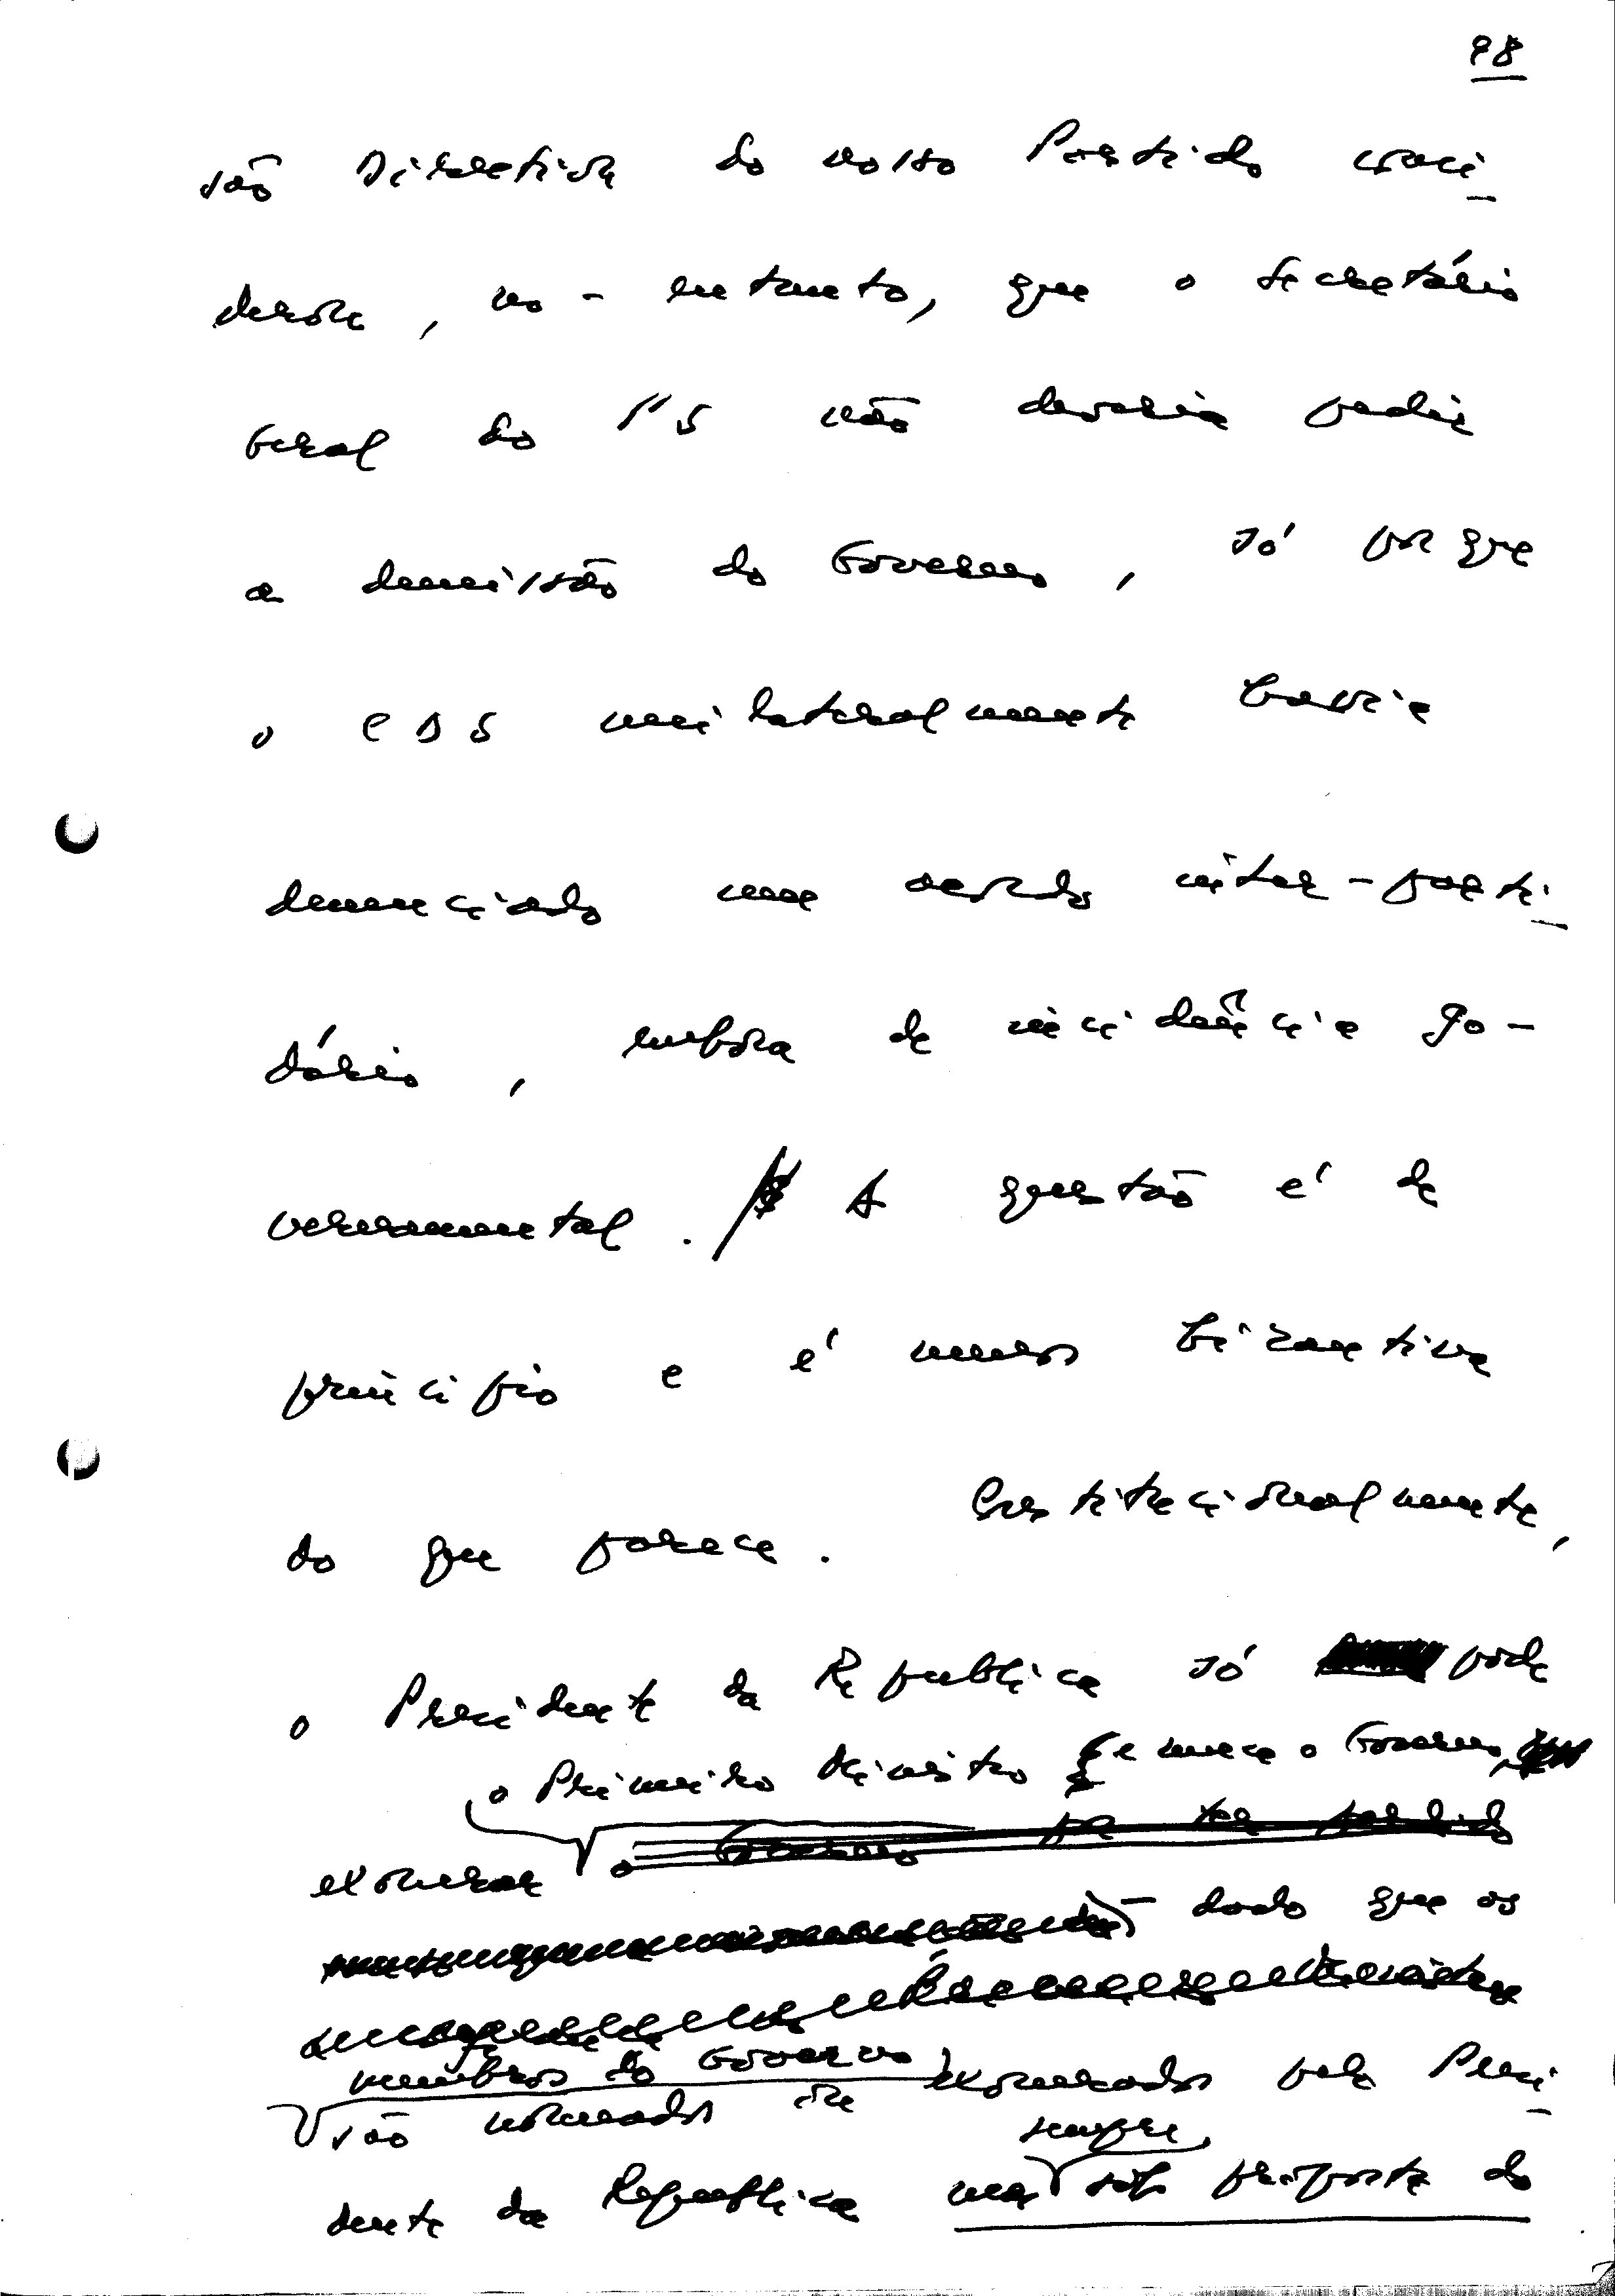 98
são Directiva do nosso Partido consi-
derou, no-entanto, que o Secretário
Geral do PS não deveria pedir
a demissão do Governo, só porque
o CDS unilateralmente havia
denunciado um acordo inter-parti-
dário, embora de incidência go-
vernamental. A questão é de
princípio e é menos bizantina
do que parece. Constitucionalmente,
o Presidente da República só pode
o Primeiro Ministro e nunca o Governo,
exonerar
dado que os
membros do Governo
são nomeados ou exonerados pelo Presi-
sempre,
dente da República mas sob proposta do